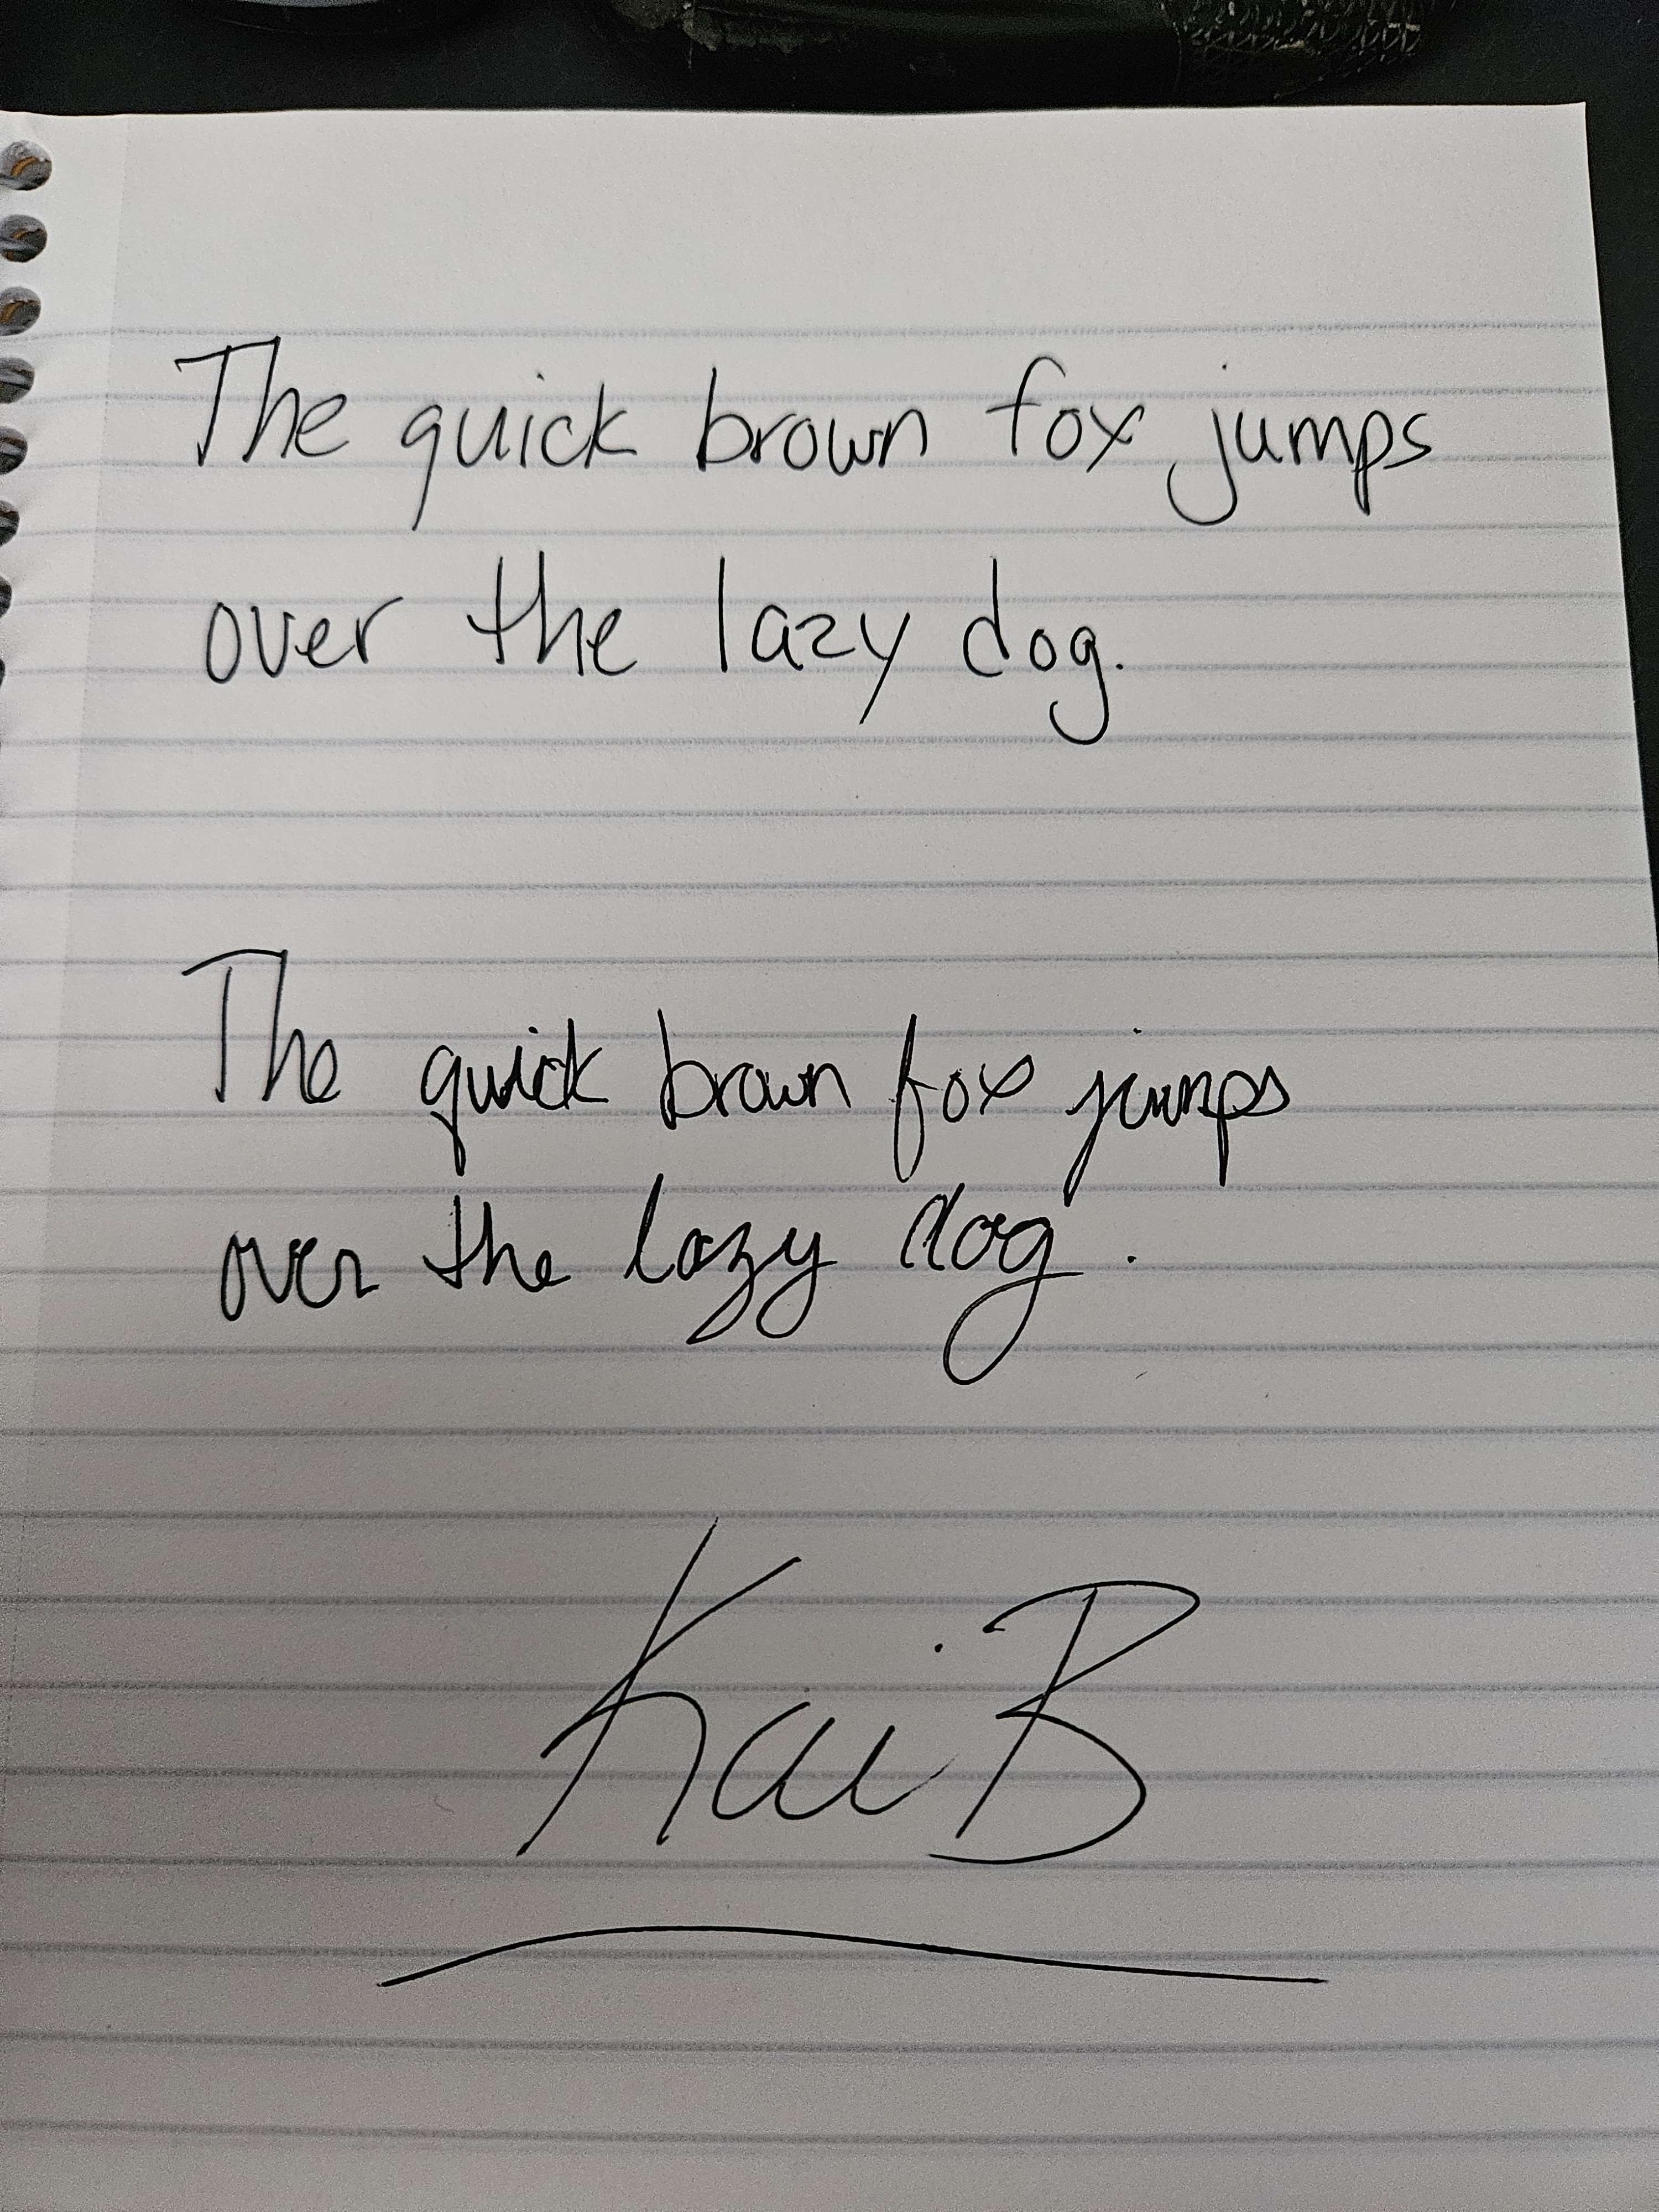 The quick brown fox jumps
over the lazy dog.
The quick brown fox jumps
over the lazy dog.
Kai B